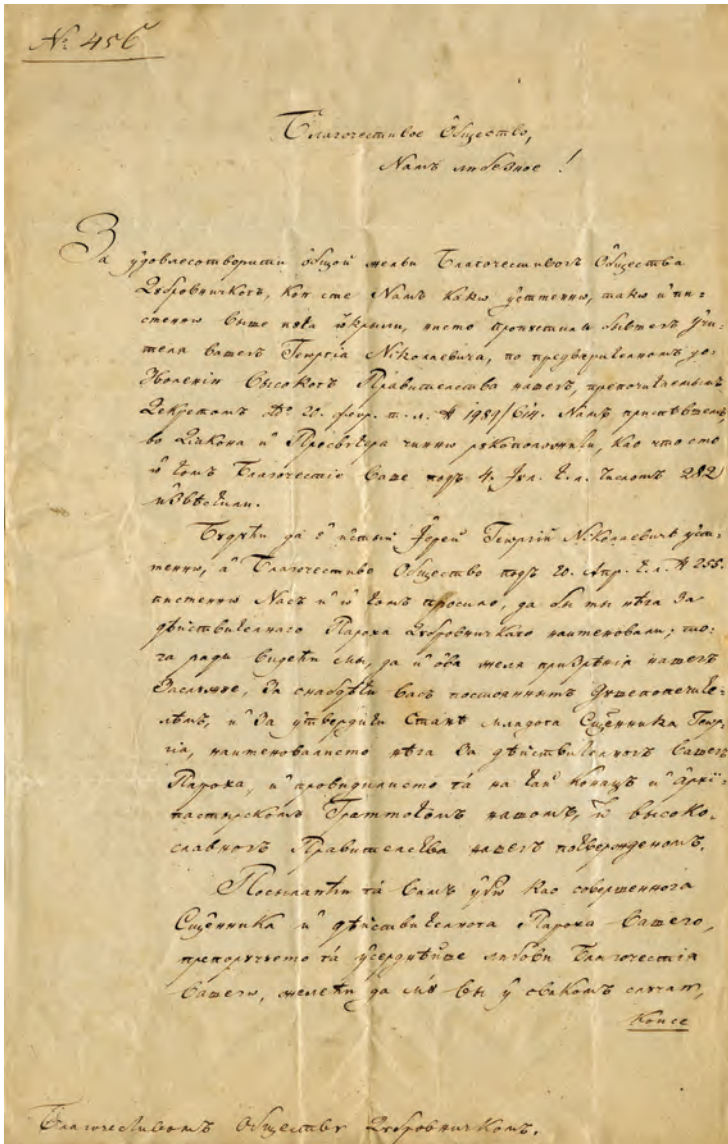 № 456
Благочестивое Общество,
Намъ любезное!
За удовлесотворити общой жельи Благочестивогъ Общества
Дубровничкогъ, кои сте Намъ какω устменнω, такω и пи-
сменнω выше пута ѿкрыли, нисмо пропустили бывшегъ учи-
теля вашегъ Геωргіа Nіколаевича, по предварителномъ до-
зволенію Высокогъ Правителства нашегъ, препочитаемымъ
Декретомъ Dº 20. Февр. т. л. № 1489/614. Намъ приспѣвшемъ,
во Діакона и Пресвѵтера чиннω рукоположили, као что смо
ѡ томъ Благочестіе Ваше подъ 4. Іул. т. л. числомъ 282
извѣстили.
Будући да є истый Іерей Геωргій Nіколаевичъ устм-
менно, а Благочестиво Общество подъ 20. Апр. т. л. № 255.
писменнω Насъ и ѡ томъ просило, да бы мы нѣга за
дѣйствителнаго Пароха Дубровничкаго наименовали; то-
га ради видећи мы, да и ова желя призрѣнія нашегъ
заслужуе, за снабдѣти васъ постояннымъ душепопечите-
лѣмъ, и за утвердити станѣ младога Сщенника Геωр-
гіа, наименовалисмо нѣга за дѣйствителногъ Вашегъ
Пароха, и провидилисмо га на тай конацъ и Архі-
пастирскомъ Грамматомъ нашомъ, ѿ высоко-
славногъ Правителства нашегъ потвержденомъ.
Посылаюћи га Вамъ убω као совершенногa
Сщенника и дѣйствителнога Пароха Вашего,
препоручуемо га усерднѣйше любови Благочестія
Вашегω, желећи да му вы у свакомъ случаю,
кои се
Благочестивомъ Обществу Дубровничкомъ.